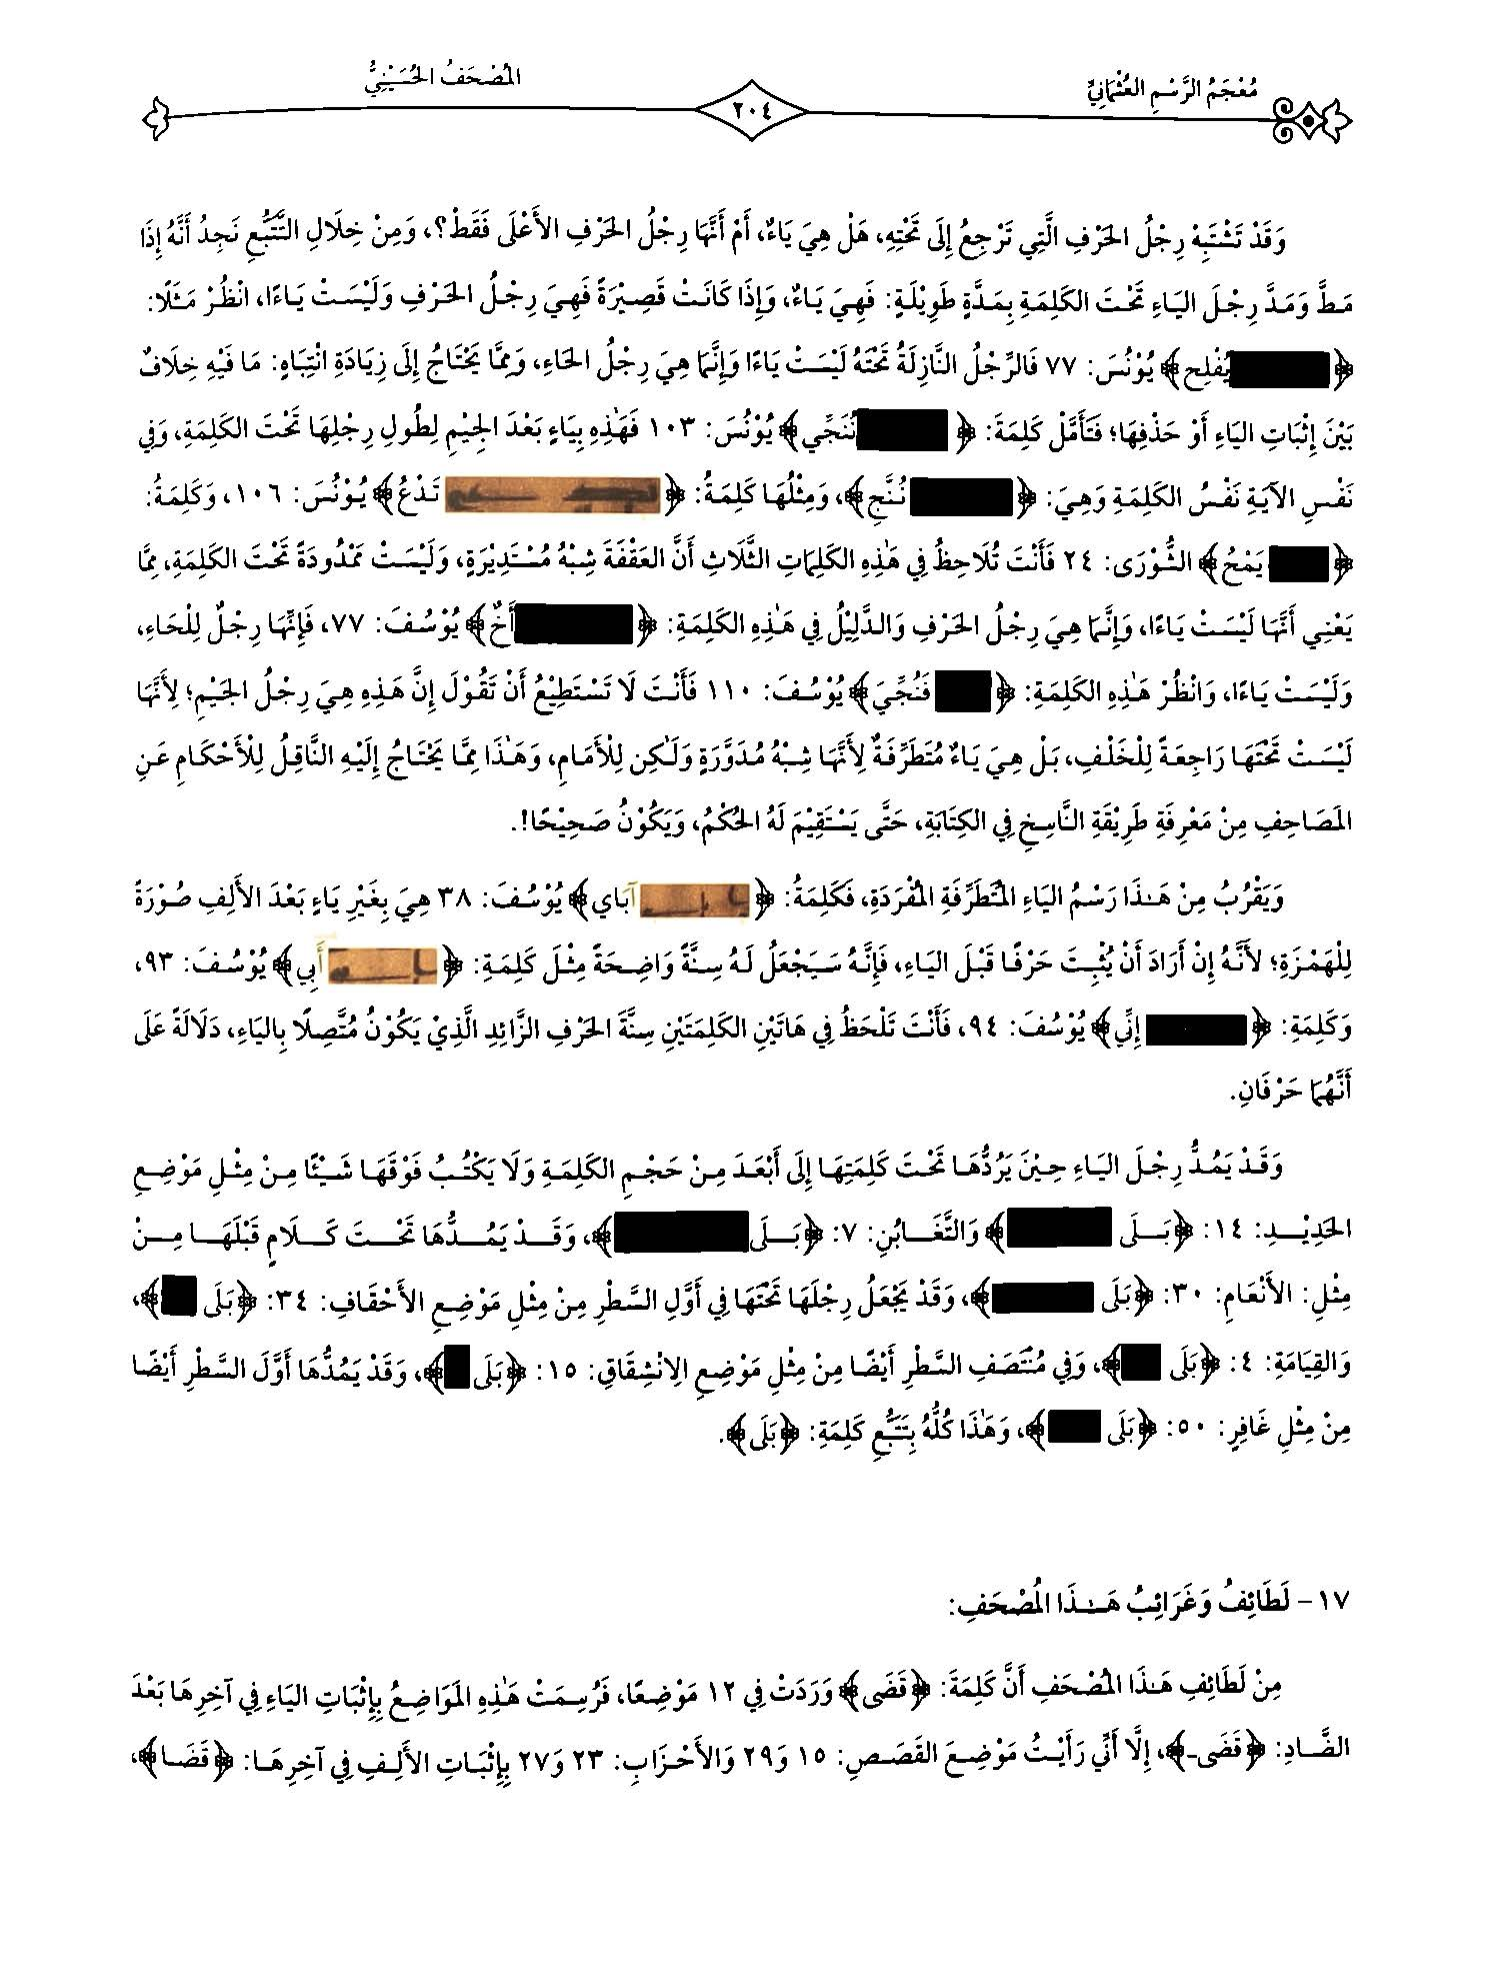 مُعْجَمُ الرَّسْمِ العُثْمَانِيِّ
٢٠٤
المُصْحَفُ الحُسَيْنِيُّ
وَقَدْ تَشْتَبِهُ رِجْلُ الحَرْفِ الَّتِي تَرْجِعُ إِلَى تَحْتِهِ، هَلْ هِيَ يَاءٌ، أَمْ أَنَّهَا رِجْلُ الحَرْفِ الأَعْلَى فَقَطْ؟، وَمِنْ خِلَالِ التَّتَبُّعِ نَجِدُ أَنَّهُ إِذَا
مَطَّ وَمَدَّ رِجْلَ اليَاءِ تَحْتَ الكَلِمَةِ بِمَدَّةٍ طَوِيْلَةٍ: فَهِيَ يَاءٌ، وَإِذَا كَانَتْ قَصِيْرَةً فَهِيَ رِجْلُ الحَرْفِ وَلَيْسَتْ يَاءًا، انْظُرْ مَثَلًا:
﴿يُفْلِح﴾ يُوْنُسَ: ٧٧ فَالرِّجْلُ النَّازِلَةُ تَحْتَهُ لَيْسَتْ يَاءًا وَإِنَّمَا هِيَ رِجْلُ الحَاءِ، وَمِمَّا يَحْتَاجُ إِلَى زِيَادَةِ انْتِبَاهٍ: مَا فِيْهِ خِلَافٌ
بَيْنَ إِثْبَاتِ اليَاءِ أَوْ حَذْفِهَا؛ فَتَأَمَّلْ كَلِمَةَ: ﴿نُنَجِّي﴾ يُوْنُسَ: ١٠٣ فَهَٰذِهِ بِيَاءٍ بَعْدَ الجِيْمِ لِطُولِ رِجْلِهَا تَحْتَ الكَلِمَةِ، وَفِي
نَفْسِ الآيَةِ نَفْسُ الكَلِمَةِ وَهِيَ: ﴿نُنَّجِ﴾، وَمِثْلُهَا كَلِمَةُ: ﴿تَدْعُ﴾ يُوْنُسَ: ١٠٦، وَكَلِمَةُ:
﴿يَمْحُ﴾ الشُّوْرَى: ٢٤ فَأَنْتَ تُلَاحِظُ فِي هَٰذِهِ الكَلِمَاتِ الثَّلَاثِ أَنَّ العَقْفَةَ شِبْهُ مُسْتَدِيْرَةٍ، وَلَيْسَتْ مَمْدُودَةً تَحْتَ الكَلِمَةِ، مِمَّا
يَعْنِي أَنَّهَا لَيْسَتْ يَاءًا، وَإِنَّمَا هِيَ رِجْلُ الحَرْفِ وَالدَّلِيْلُ فِي هَٰذِهِ الكَلِمَةِ: ﴿أَخٌ﴾ يُوْسُفَ: ٧٧، فَإِنَّهَا رِجْلٌ لِلْحَاءِ،
وَلَيْسَتْ يَاءًا، وَانْظُرْ هَٰذِهِ الكَلِمَةِ: ﴿فَنُجِّيَ﴾ يُوْسُفَ: ١١٠ فَأَنْتَ لَا تَسْتَطِيْعُ أَنْ تَقُوْلَ إِنَّ هَذِهِ هِيَ رِجْلُ الجَيْمِ؛ لِأَنَّهَا
لَيْسَتْ تَحْتَهَا رَاجِعَةً لِلْخَلْفِ، بَلْ هِيَ يَاءٌ مُتَطَرِّفَةٌ لِأَنَّهَا شِبْهُ مُدَوَّرَةٍ وَلَٰكِن لِلْأَمَامِ، وَهَٰذَا مِمَّا يَحْتَاجُ إِلَيْهِ النَّاقِلُ لِلْأَحْكَامِ عَنِ
المَصَاحِفِ مِنْ مَعْرِفَةِ طَرِيْقَةِ النَّاسِخِ فِي الكِتَابَةِ، حَتَّى يَسْتَقِيْمَ لَهُ الحُكْمُ، وَيَكُوْنُ صَحِيْحًا!.
وَيَقْرُبُ مِنْ هَٰذَا رَسْمُ اليَاءِ المُتَطَرِّفَةِ المُفْرَدَةِ، فَكَلِمَةُ: ﴿آبَاي﴾ يُوْسُفَ: ٣٨ هِيَ بِغَيْرِ يَاءٍ بَعْدَ الأَلِفِ صُوْرَةً
لِلْهَمْزَةِ؛ لأَنَّهُ إِنْ أَرَادَ أَنْ يُثْبِتَ حَرْفًا قَبْلَ اليَاءِ، فَإِنَّهُ سَيَجْعَلُ لَهُ سِنَّةً وَاضِحَةً مِثْلَ كَلِمَةِ: ﴿أَبِي﴾ يُوْسُفَ: ٩٣،
وَكَلِمَةِ: ﴿إِنِّي﴾ يُوْسُفَ: ٩٤، فَأَنْتَ تَلْحَظُ فِي هَاتَيْنِ الكَلِمَتَيْنِ سِنَّةَ الحَرْفِ الزَّائِدِ الَّذِيْ يَكُوْنُ مُتَّصِلًا بِاليَاءِ، دَلَالَةً عَلَى
أَنَّهُمَا حَرْفَانِ.
وَقَدْ يَمُدُّ رِجْلَ اليَاءِ حِيْنَ يَرُدُّهَا تَحْتَ كَلِمَتِهَا إِلَى أَبْعَدَ مِنْ حَجْمِ الكَلِمَةِ وَلَا يَكْتُبُ فَوْقَهَا شَيْئًا مِنْ مِثْلِ مَوْضِعِ
الحَدِيْدِ: ١٤: ﴿بَلَى﴾ وَالتَّغَابُنِ: ٧: ﴿بَلَى﴾، وَقَدْ يَمُدُّهَا تَحْتَ كَلَامٍ قَبْلَهَا مِنْ
مِثْلِ: الأَنْعَامِ: ٣٠: ﴿بَلَى﴾، وَقَدْ يَجْعَلُ رِجْلَهَا تَحْتَهَا فِي أَوَّلِ السَّطْرِ مِنْ مِثْلِ مَوْضِعِ الأَحْقَافِ: ٣٤: ﴿بَلَى﴾،
وَالقِيَامَةِ: ٤: ﴿بَلَى﴾، وَفِي مُنْتَصَفِ السَّطْرِ أَيْضًا مِنْ مِثْلِ مَوْضِعِ الِانْشِقَاقِ: ١٥: ﴿بَلَى﴾، وَقَدْ يَمُدُّهَا أَوَّلَ السَّطْرِ أَيْضًا
مِنْ مِثْلِ غَافِرٍ: ٥٠: ﴿بَلَى﴾، وَهَٰذَا كُلُّهُ بِتَتَبُّعِ كَلِمَةِ: ﴿بَلَى﴾.
١٧- لَطَائِفُ وَغَرَائِبُ هَٰذَا المُصْحَفِ:
مِنْ لَطَائِفِ هَٰذَا المُصْحَفِ أَنَّ كَلِمَةَ: ﴿قَضَى﴾ وَرَدَتْ فِي ١٢ مَوْضِعًا، فَرُسِمَتْ هَٰذِهِ المَوَاضِعُ بِإِثْبَاتِ اليَاءِ فِي آخِرِهَا بَعْدَ
الضَّادِ: ﴿قَضَى﴾، إِلَّا أَنِّي رَأَيْتُ مَوْضِعَ القَصَصِ: ١٥ وَ٢٩ وَالأَحْزَابِ: ٢٣ وَ٢٧ بِإِثْبَاتِ الأَلِفِ فِي آخِرِهَا: ﴿قَضَا﴾،